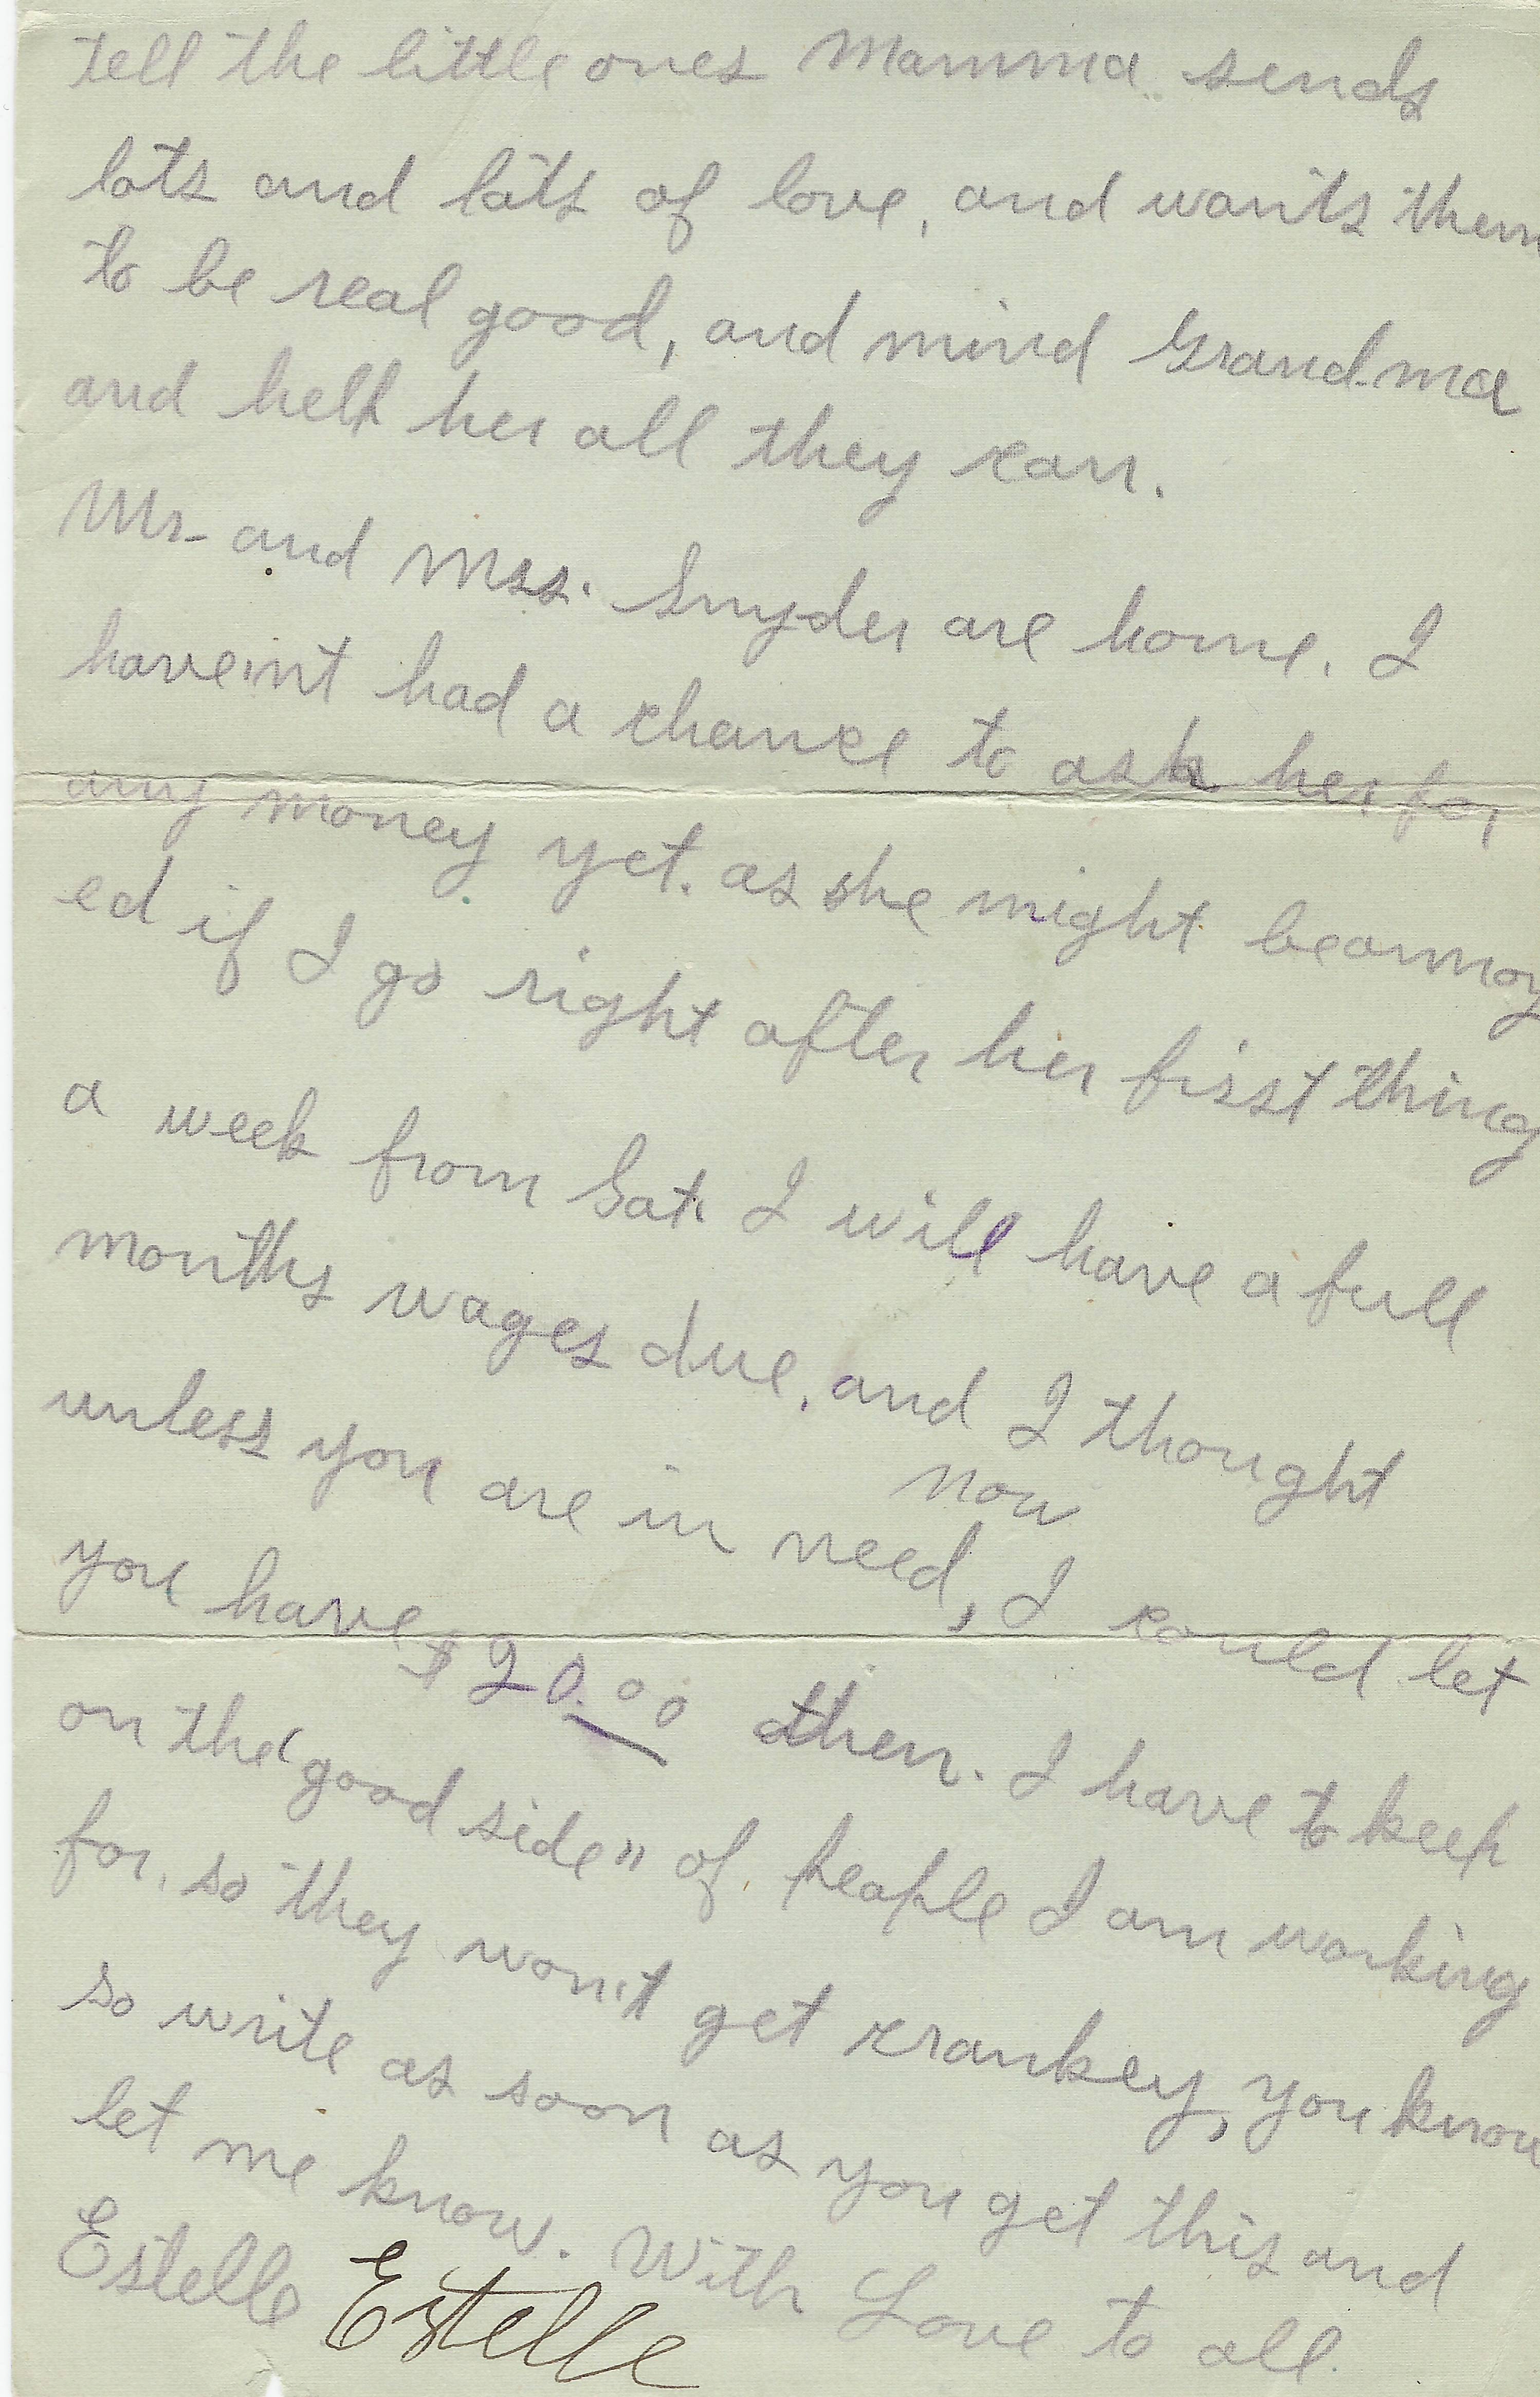 tell the little ones Mamma sends
lots and lots of love, and wants them
to be real good, and mind Grand-ma
and help her all they can.
Mr- and Mrs. Snyder are home. I
have'nt had a chance to ask her for
any money yet. as she might be annoy
ed if I go right after her first thing
a week from Sat. I will have a full
months wages due, and I thought
now
unless you are in need, I could let
you have $20.00 then. I have to keep
on the "good side" of people I am working
for, so they won't get crankey, you know
so write as soon as you get this and
let me know. With Love to all.
Estelle Estelle